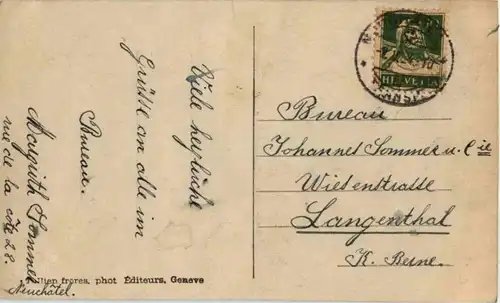 Viele herzliche
Grüsse an alle im
Bureau.
Margrith Sommer
rue de la côte 28.
Neuchâtel.
Jullien frères, phot Éditeurs, Geneve
HELVETIA
TRANSIT
Bureau
Johannes Sommer u. Cie
Wiesenstrasse
Langenthal
K. Berne.